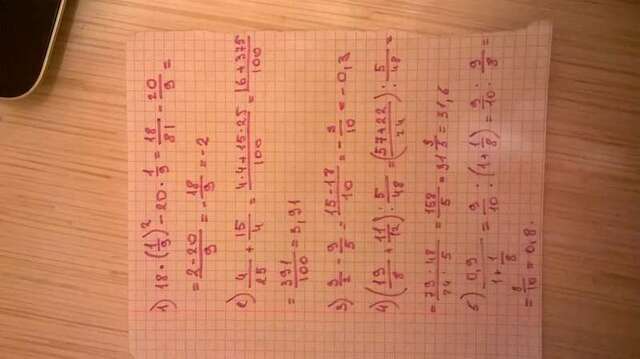 1) 18·(1/9)² − 20·1/9 = 18/81 − 20/9 =
= (2−20)/9 = −18/9 = −2
2) 4/25 + 15/4 = (4·4+15·25)/100 = (16+375)/100
= 391/100 = 3,91
3) 3/2 − 9/5 = (15−18)/10 = −3/10 = −0,3
4) (19/8 + 11/12) : 5/48 = ((57+22)/24) : 5/48 =
= (79·48)/(24·5) = 158/5 = 31 3/5 = 31,6
5) 0,9/(1+1/8) = 9/10 : (1+1/8) = 9/10 : 9/8 =
= 8/10 = 0,8.